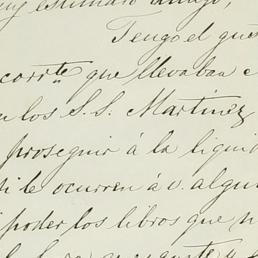 muy estimado amigo,
Tengo el gus
corrte que llevaban c
los S. S. Martinez
proseguir á la liquid
le ocurren á v. algu
poder los libros que n